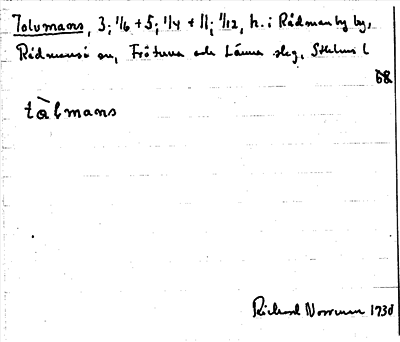 Tolvmans, 3; 1/6 + 5; 1/4 + 11; 1/12, h. i Rådmanby by,
Rådmansö sn, Frötuna och Länna slg, Sthlms l
68
tòlmans
Rickard Norrman 1938